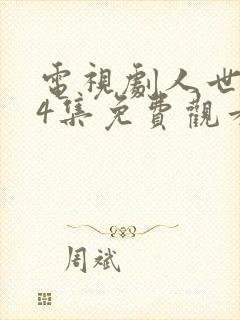 電視劇人世
4集免費觀看
周斌